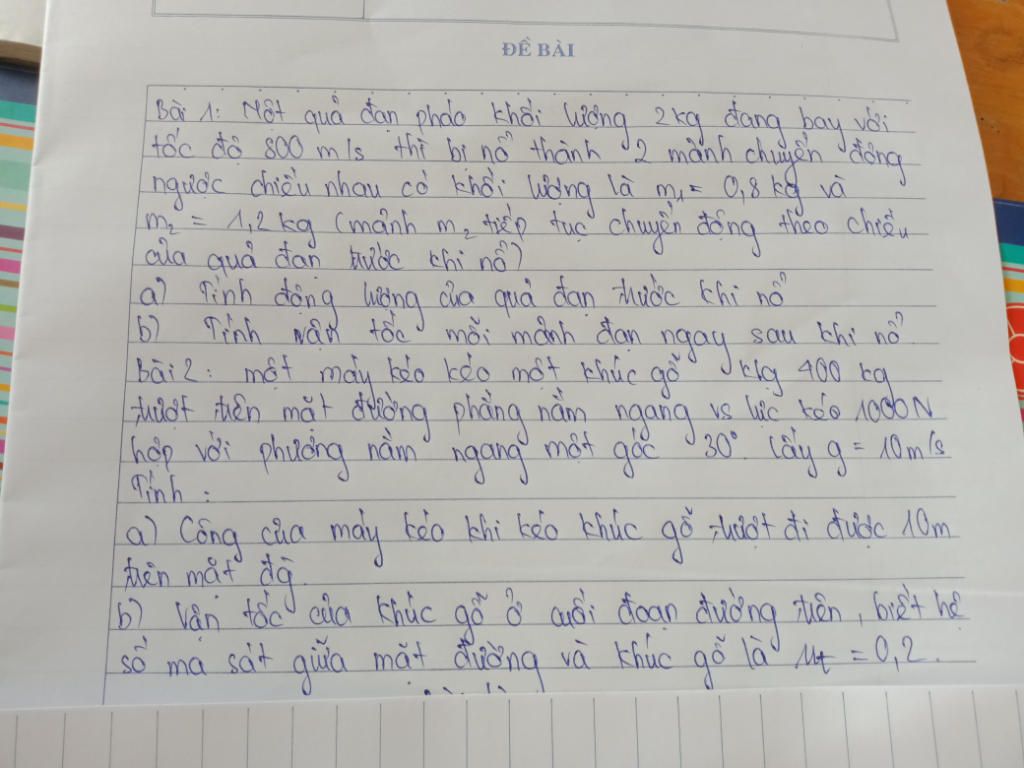 ĐỀ BÀI
Bài 1: Một quả đạn pháo khối lượng 2kg đang bay với
tốc độ 800 m/s thì bị nổ thành 2 mảnh chuyển động
ngược chiều nhau có khối lượng là m₁ = 0,8 kg và
m₂ = 1,2 kg (mảnh m₂ tiếp tục chuyển động theo chiều
của quả đạn trước khi nổ)
a) Tính động lượng của quả đạn trước khi nổ
b) Tính vận tốc mỗi mảnh đạn ngay sau khi nổ.
Bài 2: một máy kéo kéo một khúc gỗ klg 400 kg
trượt trên mặt đường phẳng nằm ngang vs lực kéo 1000N
hợp với phương nằm ngang một góc 30° lấy g = 10m/s
Tính :
a) Công của máy kéo khi kéo khúc gỗ trượt đi được 10m
trên mặt đg.
b) Vận tốc của khúc gỗ ở cuối đoạn đường trên, biết hệ
số ma sát giữa mặt đường và khúc gỗ là μt = 0,2.